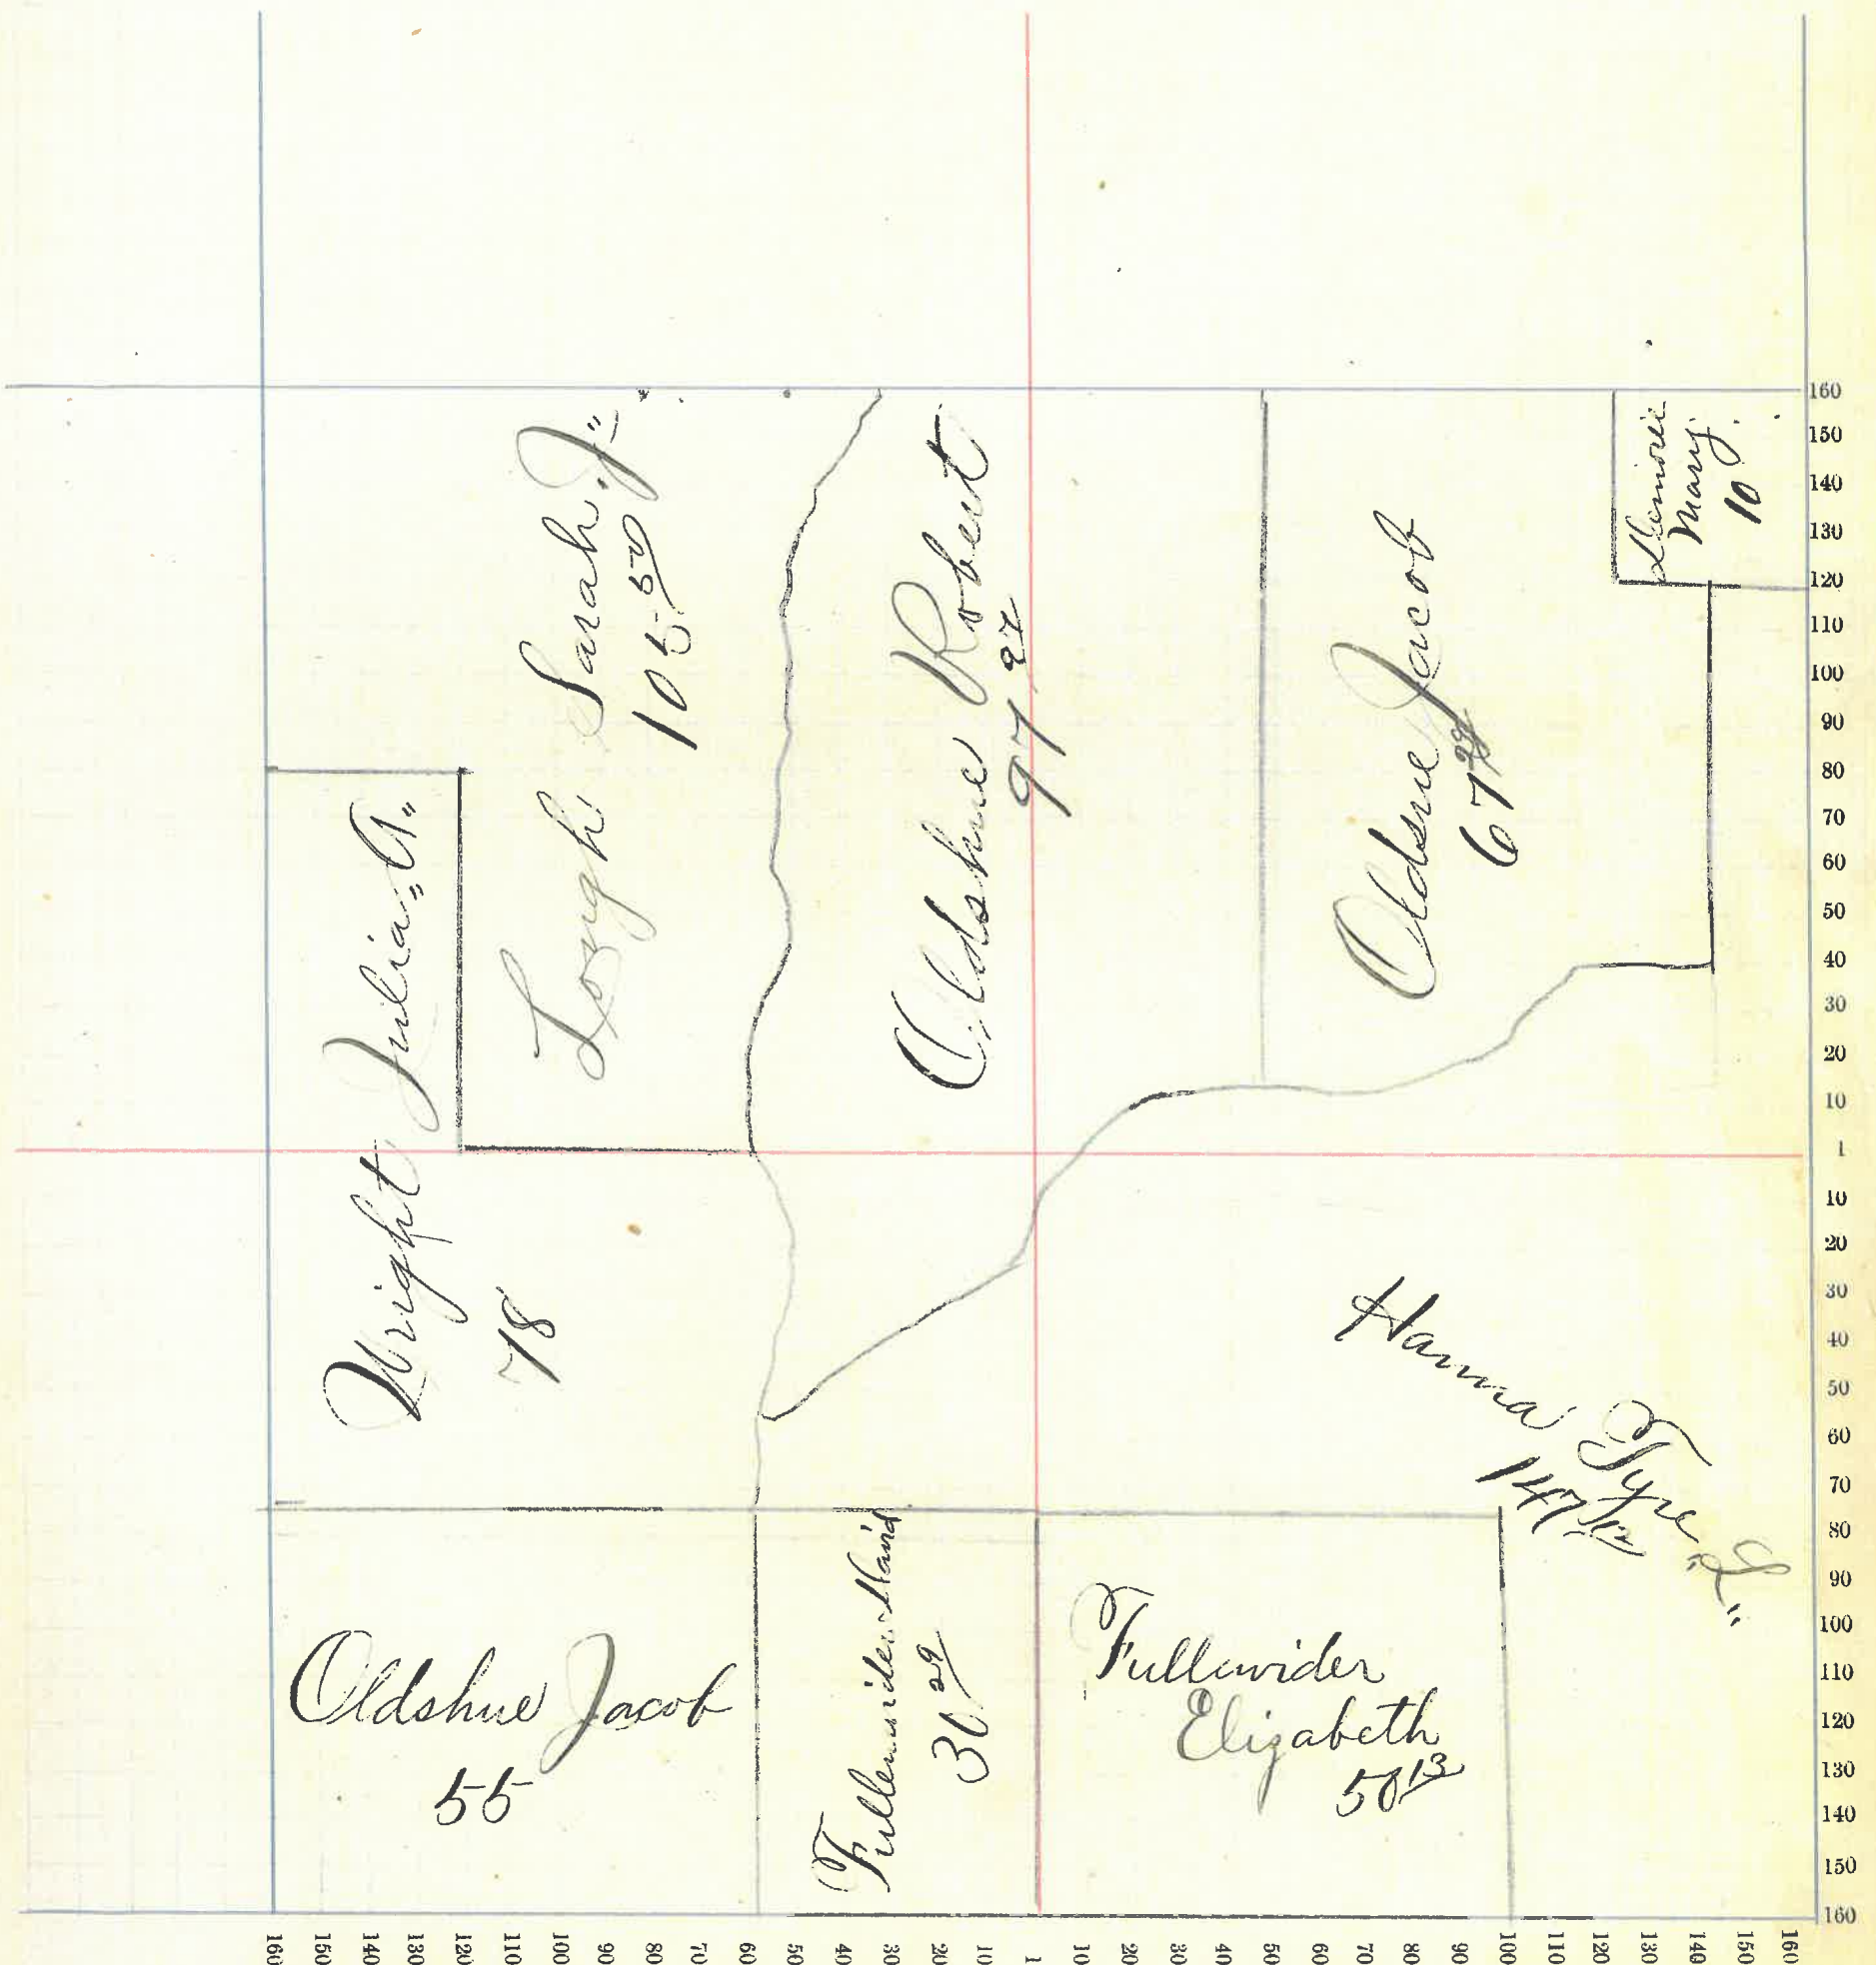 Wright Julia "A"
78
Lough Sarah "J"
105 50
Oldshue Robert
97 97
Oldsue Jacob
67 28
Mary
10
Hanna Tyre "L"
Oldshue Jacob
55
Fullenwider David
30 29
Fullenwider
Elizabeth
50 13
160
150
140
130
120
110
100
90
80
70
60
50
40
30
20
10
1
10
20
30
40
50
60
70
80
90
100
110
120
130
140
150
160
160 150 140 130 120 110 100 90 80 70 60 50 40 30 20 10 1 10 20 30 40 50 60 70 80 90 100 110 120 130 140 150 160